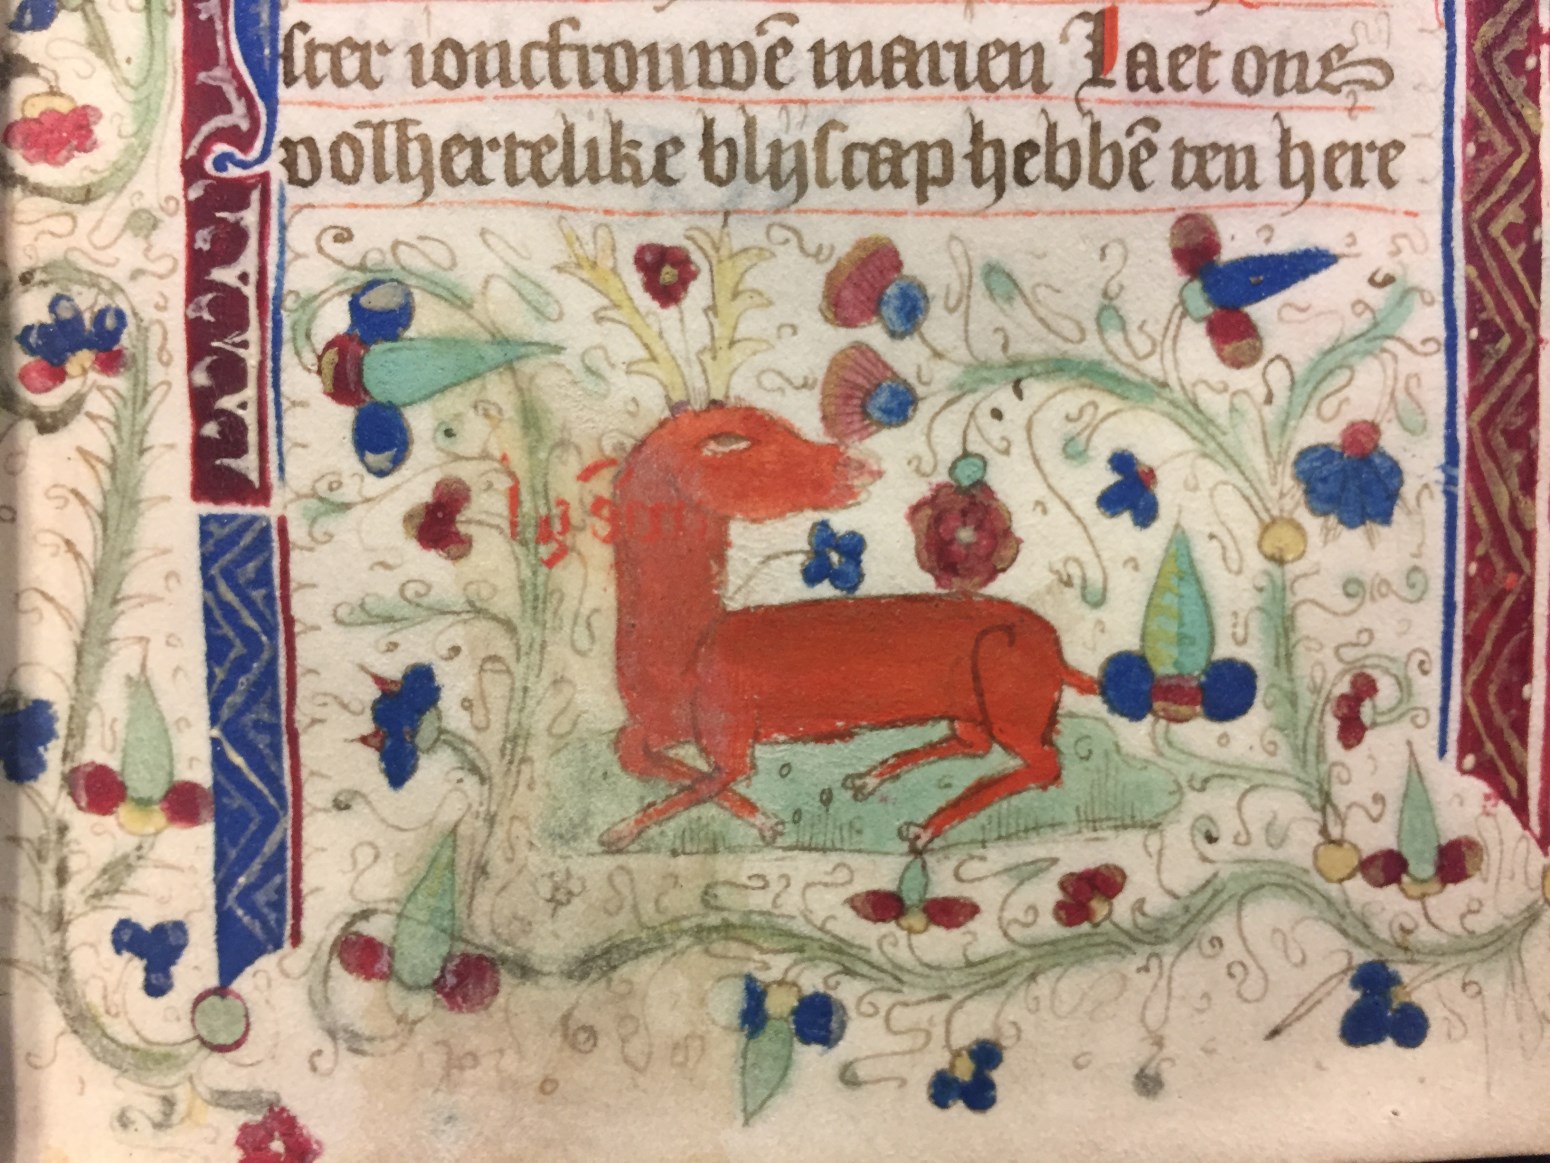 ster ioncfrouwē marien Laet ons
volhertelike blijscap hebbē ten here